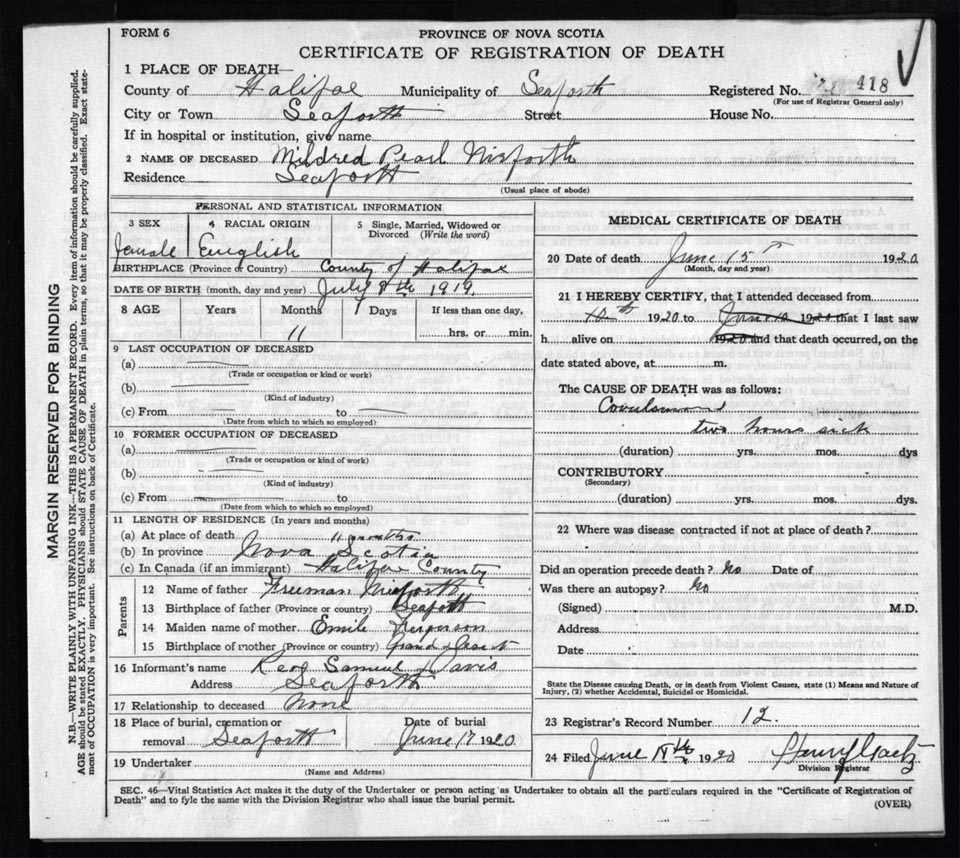 FORM 6
PROVINCE OF NOVA SCOTIA
CERTIFICATE OF REGISTRATION OF DEATH
1 PLACE OF DEATH—
County of Halifax Municipality of Seaforth Registered No. 418
(For use of Registrar General only)
City or Town Seaforth Street House No.
If in hospital or institution, give name
2 NAME OF DECEASED Mildred Pearl Nieforth
Residence Seaforth
(Usual place of abode)
PERSONAL AND STATISTICAL INFORMATION
3 SEX 4 RACIAL ORIGIN 5 Single, Married, Widowed or Divorced (Write the word)
female English
BIRTHPLACE (Province or Country) County of Halifax
DATE OF BIRTH (month, day and year) July 8th 1919
8 AGE Years Months Days If less than one day,
11 hrs. or min.
9 LAST OCCUPATION OF DECEASED
(a)
(Trade or occupation or kind or work)
(b)
(Kind of industry)
(c) From to
(Date from which to which so employed)
10 FORMER OCCUPATION OF DECEASED
(a)
(Trade or occupation or kind of work)
(b)
(Kind of industry)
(c) From to
(Date from which to which so employed)
11 LENGTH OF RESIDENCE (In years and months)
(a) At place of death 11 months
(b) In province Nova Scotia
(c) In Canada (if an immigrant) Halifax County
Parents
12 Name of father Freeman Nieforth
13 Birthplace of father (Province or country) Seaforth
14 Maiden name of mother Emile Ferguson
15 Birthplace of mother (Province or country) Grand Desert
16 Informant's name Rev Samuel Davis
Address Seaforth
17 Relationship to deceased None
18 Place of burial, cremation or removal Seaforth Date of burial June 17 1920
19 Undertaker
(Name and Address)
MEDICAL CERTIFICATE OF DEATH
20 Date of death June 15 1920
(Month, day and year)
21 I HEREBY CERTIFY, that I attended deceased from
1920 to 1920 that I last saw
h alive on 1920 and that death occurred, on the
date stated above, at m.
The CAUSE OF DEATH was as follows:
two hours sick
(duration) yrs. mos. dys
CONTRIBUTORY
(Secondary)
(duration) yrs. mos. dys.
22 Where was disease contracted if not at place of death?
Did an operation precede death? No Date of
Was there an autopsy? No
(Signed) M.D.
Address
Date
State the Disease causing Death, or in death from Violent Causes, state (1) Means and Nature of Injury, (2) whether Accidental, Suicidal or Homicidal.
23 Registrar's Record Number 12.
24 Filed June 1920 Henry Gaetz
Division Registrar
SEC. 46—Vital Statistics Act makes it the duty of the Undertaker or person acting as Undertaker to obtain all the particulars required in the "Certificate of Registration of
Death" and to fyle the same with the Division Registrar who shall issue the burial permit.
(OVER)
MARGIN RESERVED FOR BINDING
N.B.—WRITE PLAINLY WITH UNFADING INK—THIS IS A PERMANENT RECORD. Every item of information should be carefully supplied.
AGE should be stated EXACTLY. PHYSICIANS should STATE CAUSE OF DEATH in plain terms, so that it may be properly classified. Exact state-
ment of OCCUPATION is very important. See instructions on back of Certificate.